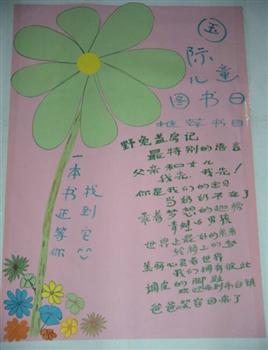 国
际
儿童
图书日
推荐书目
野兔盖房记
最特别的语言
父亲和女儿
我先，我先！
你是我们的宝贝
当奶奶不在了
乘着梦想的翅膀
青蛙与男孩
世界上最好的爸爸
给骑士的梦
美丽心灵看世界
我们拥有彼此
调皮的
爸爸笑容回来了
一本书正等你
找到它